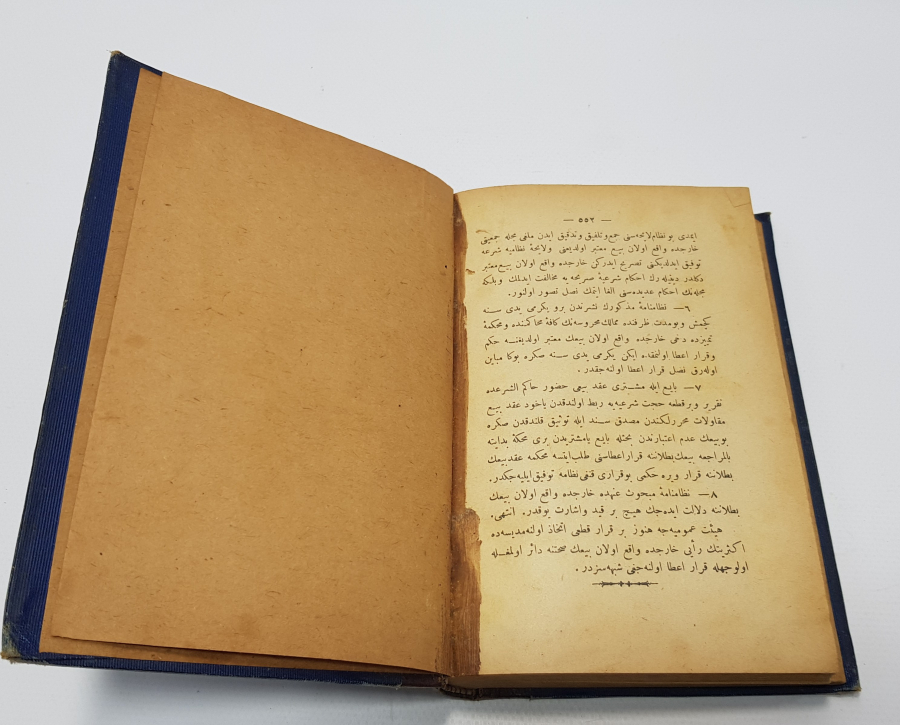 — ٥٥٢ —
ايمدى بو نظام لايحه‌سنى جمع وتلفيق وتدقيق ايدن ملغى مجله جمعيتى
خارجده واقع اولان بيع معتبر اولديغنى ولايحهٔ نظاميه شرعه
توفيق ايدلديكنى تصريح ايدركن خارجده واقع اولان بيع معتبر
دكلدر ديه‌رك احكام شرعيهٔ صريحه‌يه مخالفت ايدلمك وبلكه
مجله‌نك احكام عديده‌سنى الغا ايتمك نصل تصور اولنور.
٦— نظامنامهٔ مذكورك نشرندن برو يكرمى يدى سنه
كچمش وبومدت ظرفنده ممالك محروسه‌نك كافهٔ محاكمنده ومحكمهٔ
تميزده دخى خارجده واقع اولان بيعك معتبر اولديغنه حكم
وقرار اعطا اولنمقده ايكن يكرمى يدى سنه صكره بوكا مباين
اوله‌رق نصل قرار اعطا اولنه‌جقدر.
٧— بايع ايله مشترى عقد بيعى حضور حاكم الشرعده
تقرير وبر قطعه حجت شرعيه‌يه ربط اولندقدن ياخود عقد بيع
مقاولات محررلكندن مصدق سند ايله توثيق قلندقدن صكره
بو بيعك عدم اعتبارندن بحثله بايع يامشتريدن برى محكمهٔ بدايته
بالمراجعه بيعك بطلاننه قرار اعطاسنى طلب ايتسه محكمه عقد بيعك
بطلاننه قرار ويره‌حكمى بوقرارى قنغى نظامه توفيق ايليه‌جكدر.
٨— نظامنامهٔ مبحوث عنهده خارجده واقع اولان بيعك
بطلاننه دلالت ايده‌جك هيچ بر قيد واشارت يوقدر. انتهى.
هيئت عموميه‌جه هنوز بر قرار قطعى اتخاذ اولنه‌مديسه‌ده
اكثريتك رأيى خارجده واقع اولان بيعك صحتنه دائر اولمغله
اولوجهله قرار اعطا اولنه‌جغى شبهه‌سزدر.